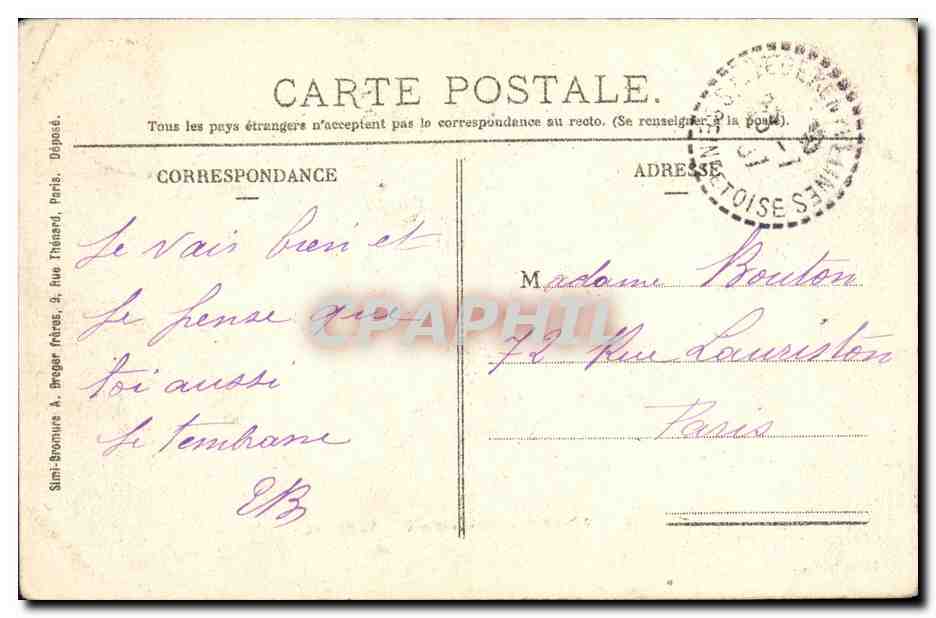 CARTE POSTALE.
Tous les pays étrangers n'acceptent pas la correspondance au recto. (Se renseigner à la poste).
CORRESPONDANCE
ADRESSE
Je vais bien et
Je pense que
toi aussi
Je t'embrasse
EB
Madame Bouton
72 Rue Lauriston
Paris
SEINE ET OISE
Simi-Bromure A. Breger frères, 9, Rue Thénard, Paris. Déposé.
CPAPHIL